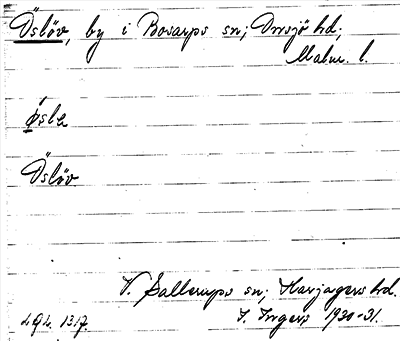 Öslöv, by i Bosarps sn; Onsjö hd;
Malm. l.
Öslöv.
V. Sallerups sn; Harjagers hd.
I. Ingers 1930-31.